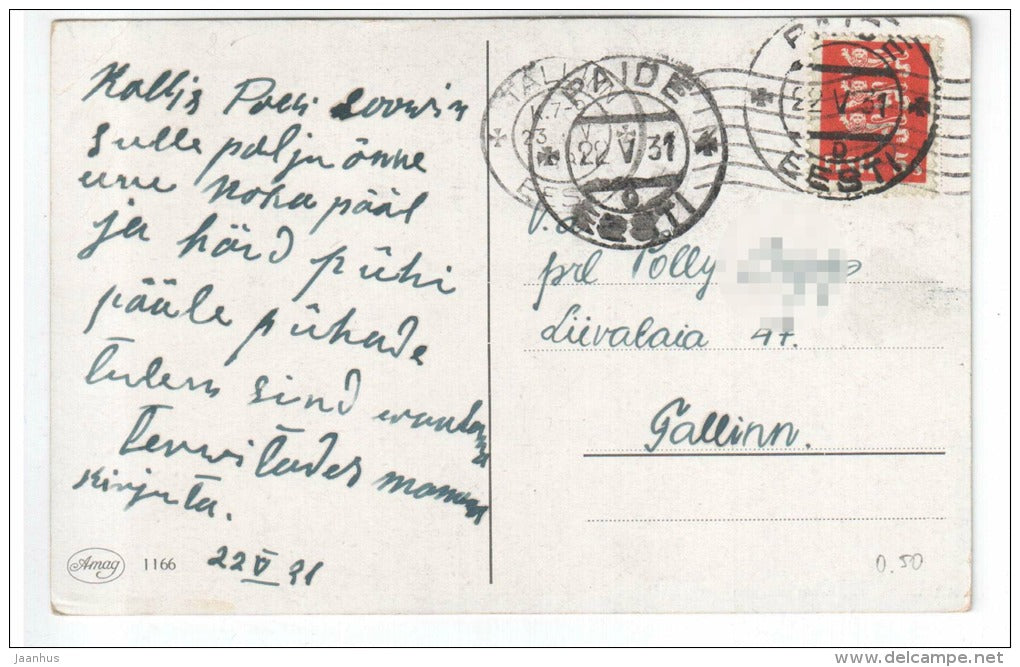 Kallis Polli soowin
sulle palju õnne
uue koha pääl
ja häid pühi
pääle pühade
tulen sind waatama
Terwitades mamma
Kirjuta.
22 V 31
Amag 1166
TALLINN
23 V
EESTI
PAIDE
22 V 31
EESTI
22 V 31
EESTI
prl Polly
Liivalaia 47.
Tallinn.
0.50
jaanhus
delcampe.net